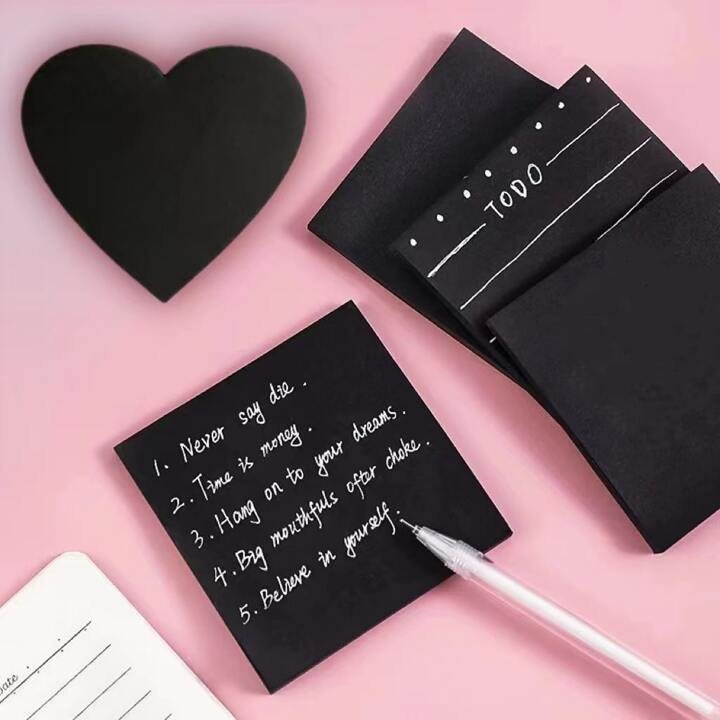 TODO
1. Never say die.
2. Time is money.
3. Hang on to your dreams.
4. Big mouthfuls ofter choke.
5. Believe in yourself.
Date